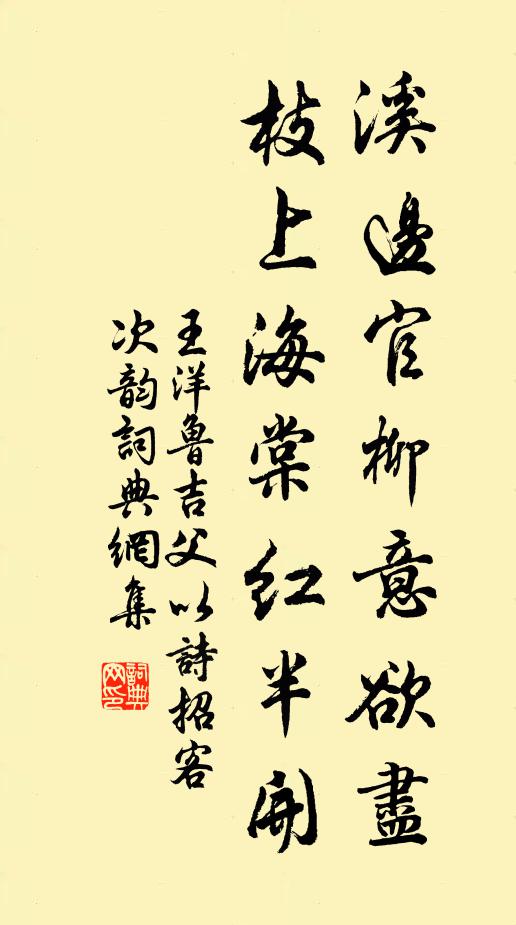 溪邊官柳意欲盡
枝上海棠紅半開
王洋魯吉父以詩招客
次韵詞典網集
詞典網印